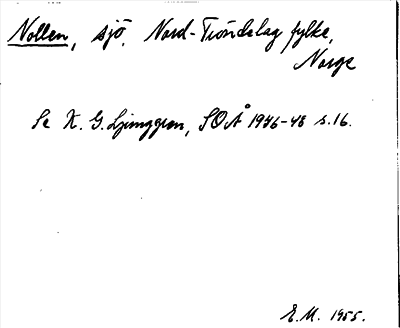 Nollen, sjö. Nord-Tröndelag fylke,
Norge
Se K. G. Ljunggren, SOÅ 1946-48 s. 16.
E. M. 1955.